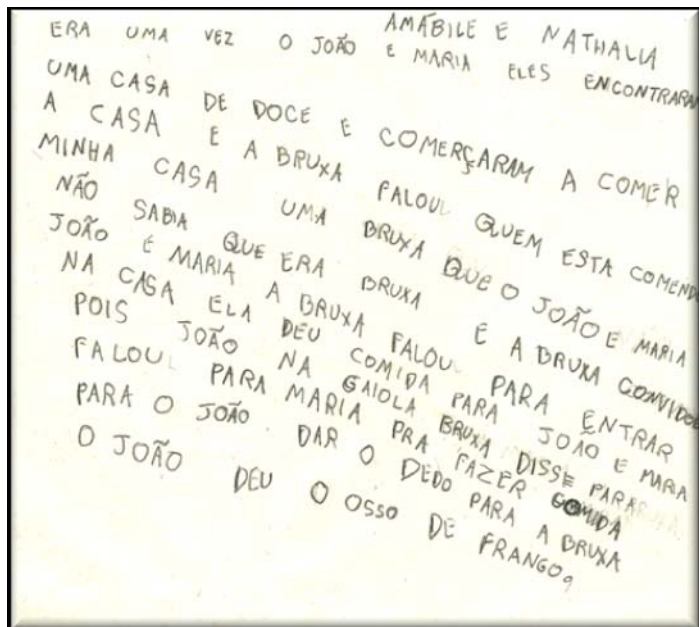 AMÁBILE E NATHALIA
ERA UMA VEZ O JOÃO E MARIA ELES ENCONTRARAM
UMA CASA DE DOCE E COMERÇARAM A COMER
A CASA E A BRUXA FALOU QUEM ESTA COMENDO
MINHA CASA UMA BRUXA QUE O JOÃO E MARIA
NÃO SABIA QUE ERA BRUXA E A BRUXA CONVIDOU
JOÃO E MARIA A BRUXA FALOU PARA ENTRAR
NA CASA ELA DEU COMIDA PARA JOÃO E MARA
POIS JOÃO NA GAIOLA BRUXA DISSE PARA
FALOU PARA MARIA PRA FAZER COMIDA
PARA O JOÃO DAR O DEDO PARA A BRUXA
O JOÃO DEU O OSSO DE FRANGO